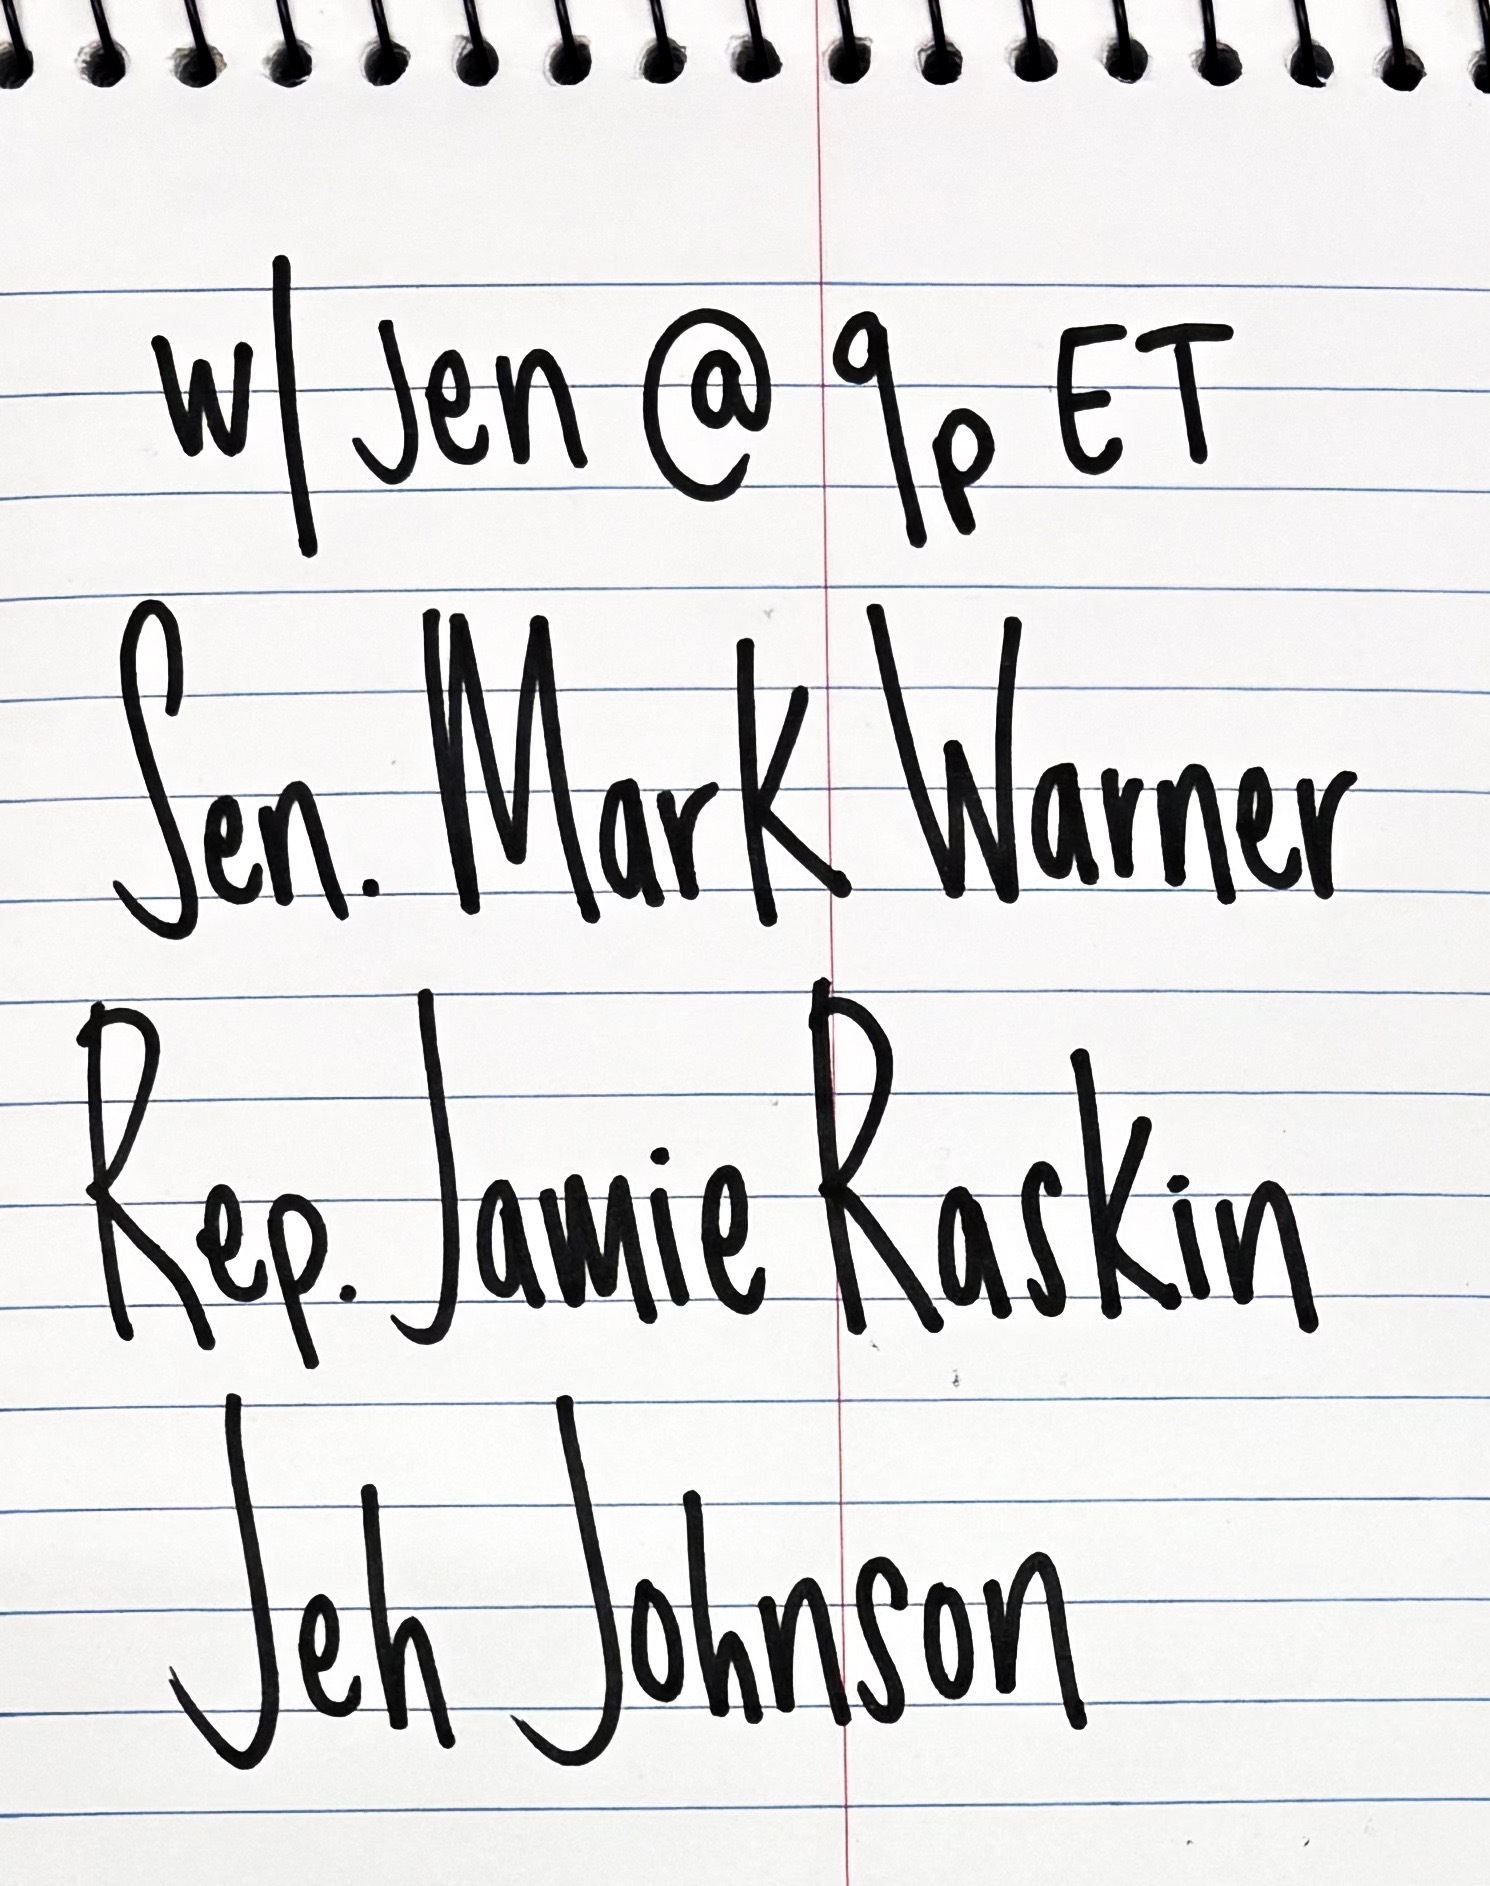 w/ Jen @ 9p ET
Sen. Mark Warner
Rep. Jamie Raskin
Jeh Johnson